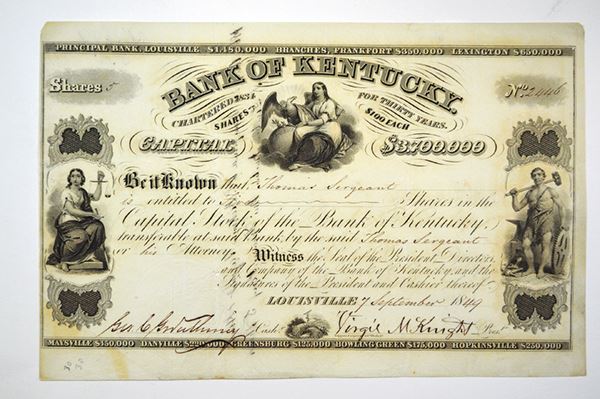 PRINCIPAL BANK, LOUISVILLE $1,480,000 BRANCHES, FRANKFORT $350,000 LEXINGTON $650,000
Shares 5
No. 2446
BANK OF KENTUCKY.
CHARTERED 1834 FOR THIRTY YEARS.
SHARES $100 EACH
CAPITAL $3,700,000
Be it Known that Thomas Sergeant
is entitled to Shares in the
Capital Stock of the Bank of Kentucky,
transferable at said Bank, by the said Thomas Sergeant
or his Attorney. Witness the Seal of the President, Directors
and Company of the Bank of Kentucky, and the
Signatures of the President and Cashier thereof
LOUISVILLE 7 September 1849
Geo. C. Gwathmey Cash. Virgil McKnight Pres.
MAYSVILLE $350,000 DANVILLE $220,000 GREENSBURG $125,000 BOWLING GREEN $175,000 HOPKINSVILLE $250,000